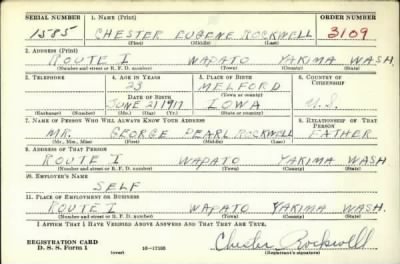 SERIAL NUMBER 1. NAME (Print) ORDER NUMBER
1585 CHESTER EUGENE ROCKWELL 3109
(First) (Middle) (Last)
2. ADDRESS (Print)
ROUTE I WAPATO YAKIMA WASH.
(Number and street or R. F. D. number) (Town) (County) (State)
3. TELEPHONE 4. AGE IN YEARS 5. PLACE OF BIRTH 6. COUNTRY OF CITIZENSHIP
23 MELFORD
DATE OF BIRTH (Town or county)
JUNE 21 1917 IOWA U.S.
(Exchange) (Number) (Mo.) (Day) (Yr.) (State or country)
7. NAME OF PERSON WHO WILL ALWAYS KNOW YOUR ADDRESS 8. RELATIONSHIP OF THAT PERSON
MR. GEORGE PEARL ROCKWELL FATHER
(Mr., Mrs., Miss) (First) (Middle) (Last)
9. ADDRESS OF THAT PERSON
ROUTE I WAPATO YAKIMA WASH
(Number and street or R. F. D. number) (Town) (County) (State)
10. EMPLOYER'S NAME
SELF
11. PLACE OF EMPLOYMENT OR BUSINESS
ROUTE I WAPATO YAKIMA WASH
(Number and street or R. F. D. number) (Town) (County) (State)
I AFFIRM THAT I HAVE VERIFIED ABOVE ANSWERS AND THAT THEY ARE TRUE.
REGISTRATION CARD
D. S. S. Form 1 (over) 16-17105 Chester Rockwell
(Registrant's signature)